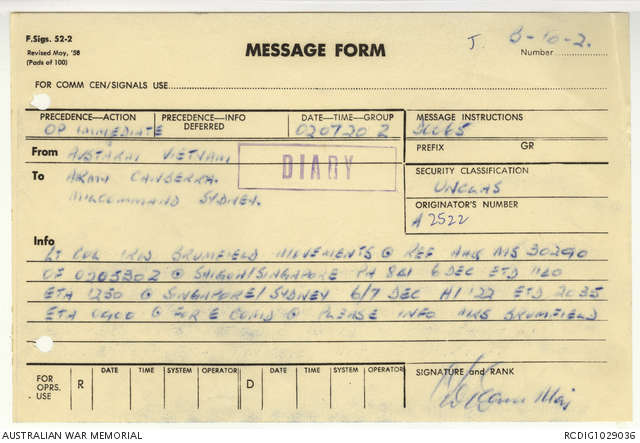 F.Sigs. 52-2
Revised May, '58
(Pads of 100)
MESSAGE FORM
J. B-10-2.
Number
FOR COMM CEN/SIGNALS USE
PRECEDENCE—ACTION
OP IMMEDIATE
PRECEDENCE—INFO
DEFERRED
DATE—TIME—GROUP
020720Z
MESSAGE INSTRUCTIONS
PREFIX GR
From AUSTARM VIETNAM
DIARY
To ARMY CANBERRA.
MILCOMMAND SYDNEY.
SECURITY CLASSIFICATION
UNCLAS
ORIGINATOR'S NUMBER
A2522
Info
LT COL IRW BRUMFIELD MOVEMENTS @ REF AHQ MS 30290
OF 020530Z @ SAIGON/SINGAPORE PA 841 6 DEC ETD 1140
ETA 1250 @ SINGAPORE/SYDNEY 6/7 DEC AI 122 ETD 2035
ETA 0900 @ FOR E COMD @ PLEASE INFO MRS BRUMFIELD
FOR OPRS. USE
R DATE TIME SYSTEM OPERATOR D DATE TIME SYSTEM OPERATOR
SIGNATURE and RANK
Maj
AUSTRALIAN WAR MEMORIAL
RCDIG1029036